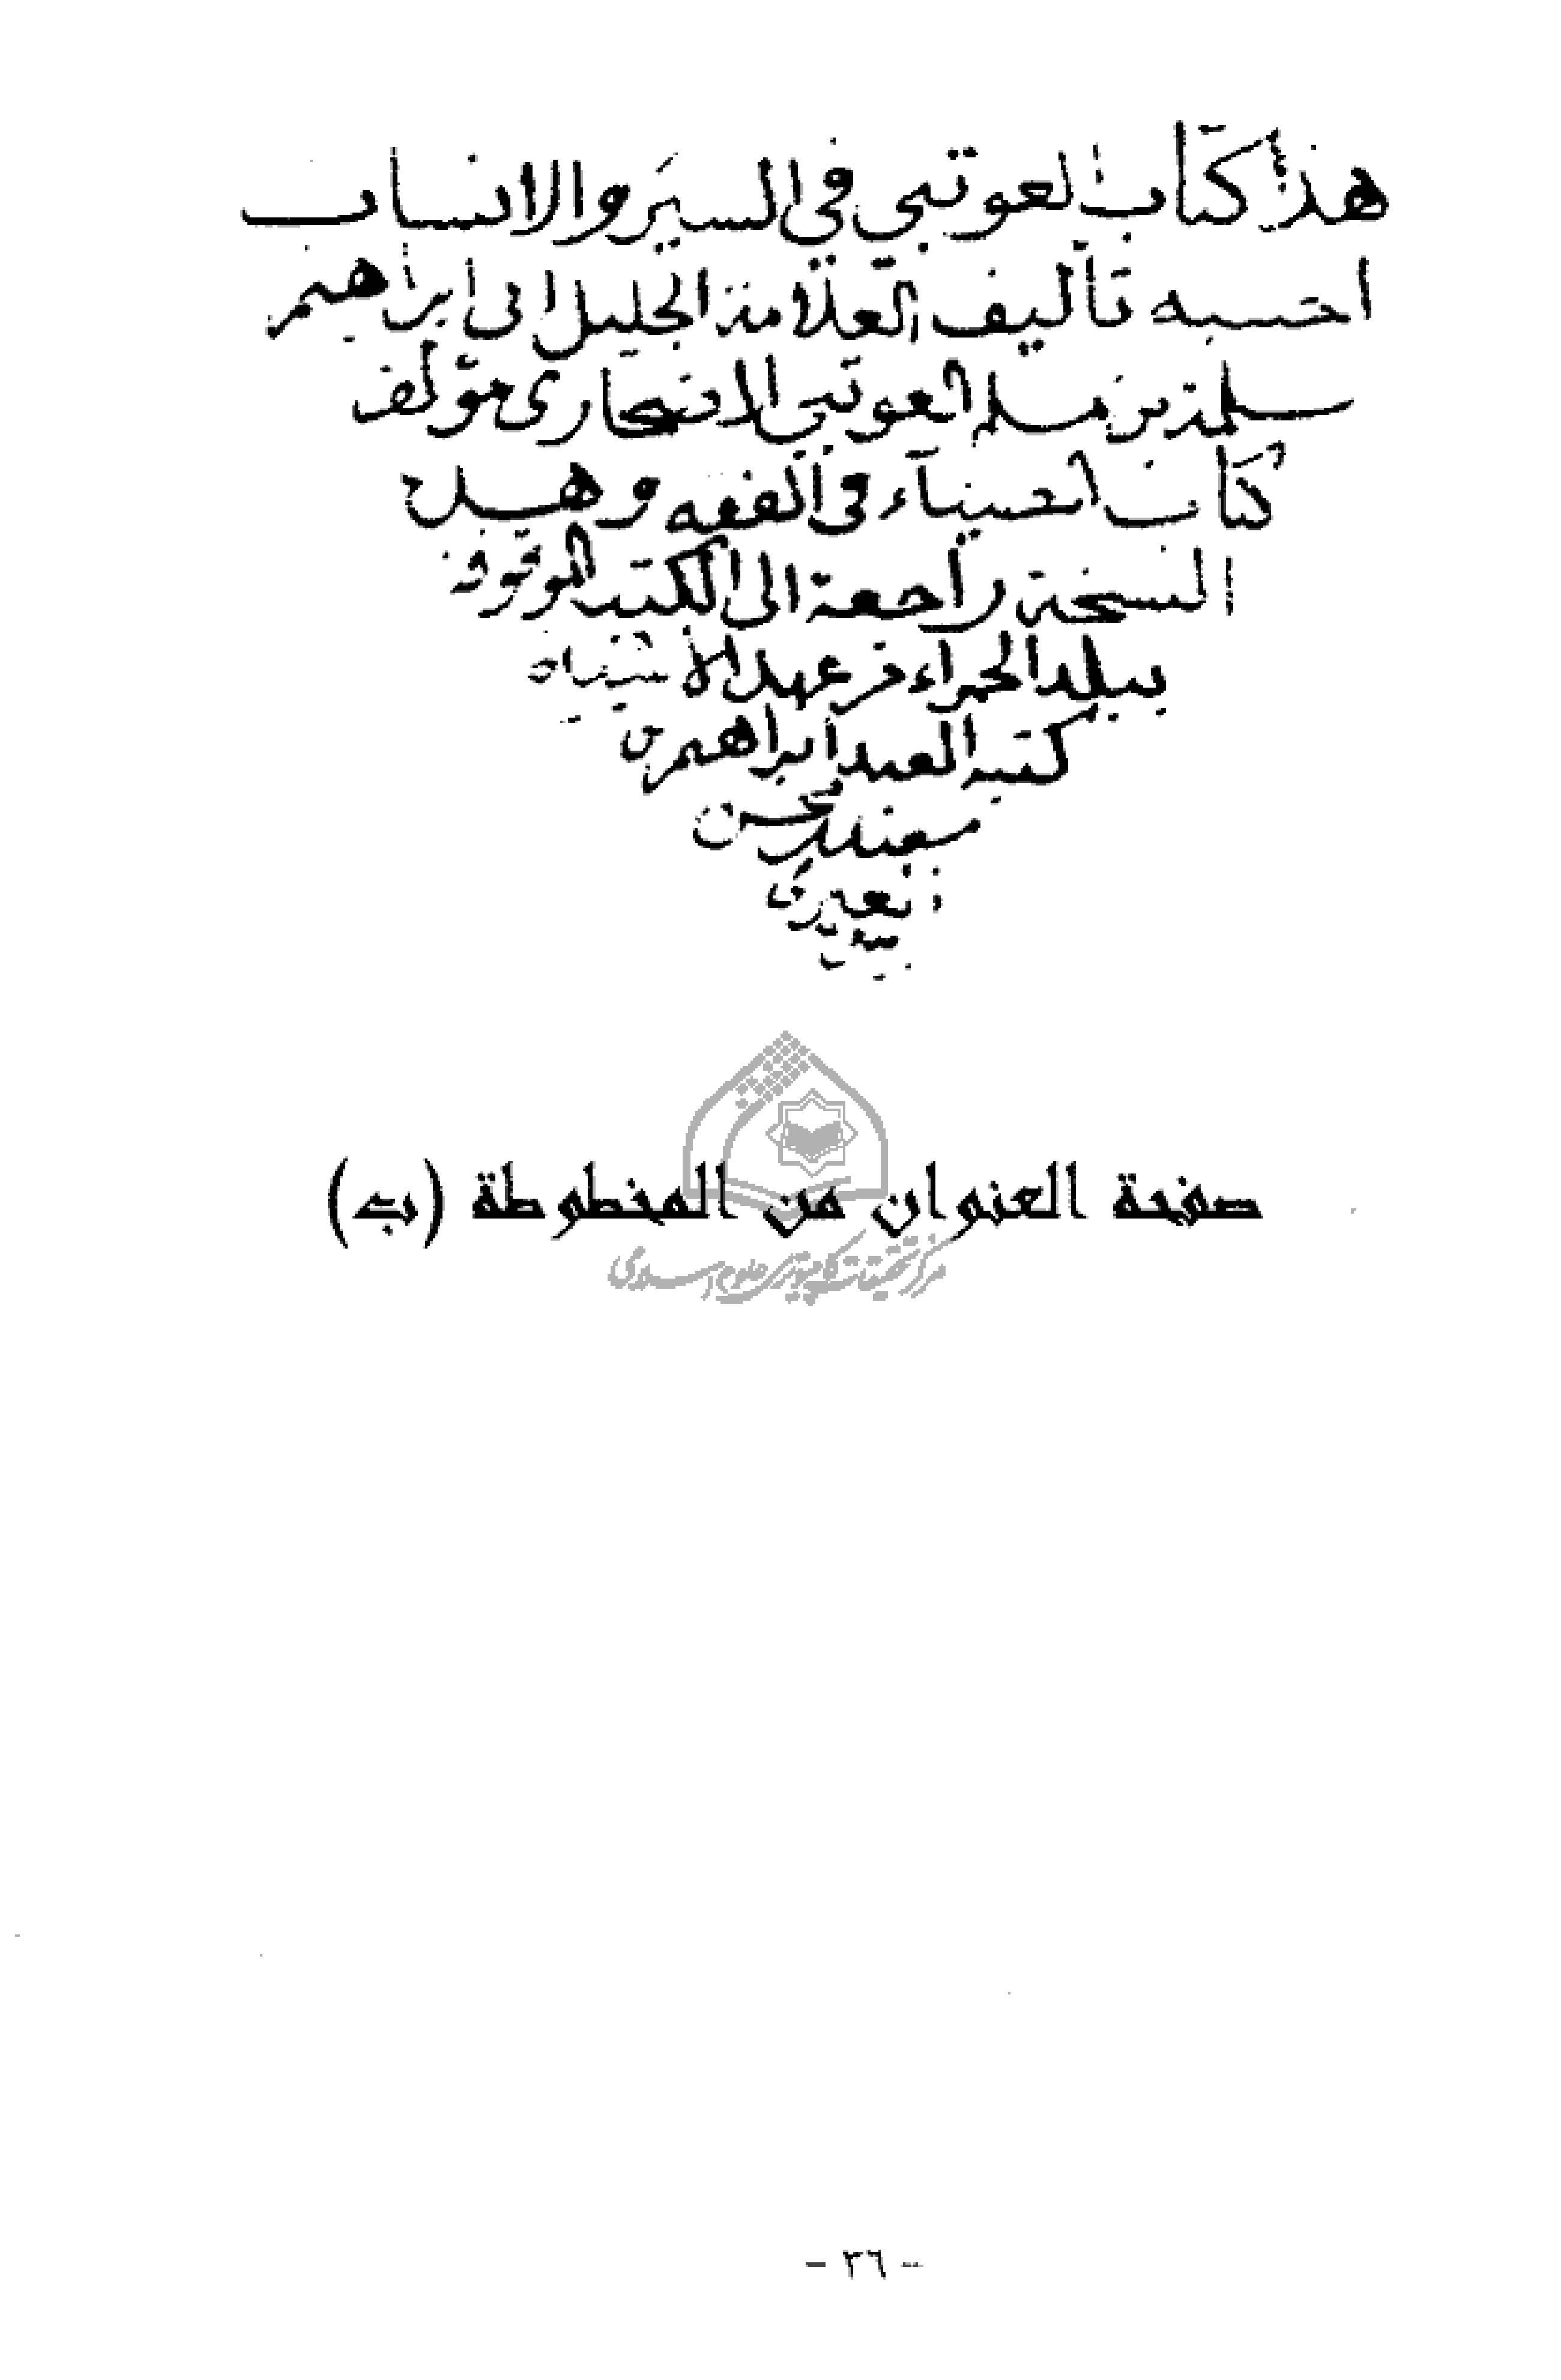 هذا كتاب العوتبي في السير والانساب
احسبه تأليف العلامة الجليل ابى ابراهيم
سلمة بن مسلم العوتبي الانصحارى مؤلف
كتاب الضياء في الفقه وهذه
النسخة راجعة الى الكتب الموقوفة
ببلد الحمراء من عهد الأ
كتبه العبد ابراهيم بن
سعيد بن محسن
صفحة العنوان من المخطوطة (ب)
مركز تحقيقات كامپيوترى علوم اسلامى
- ٣٦ -